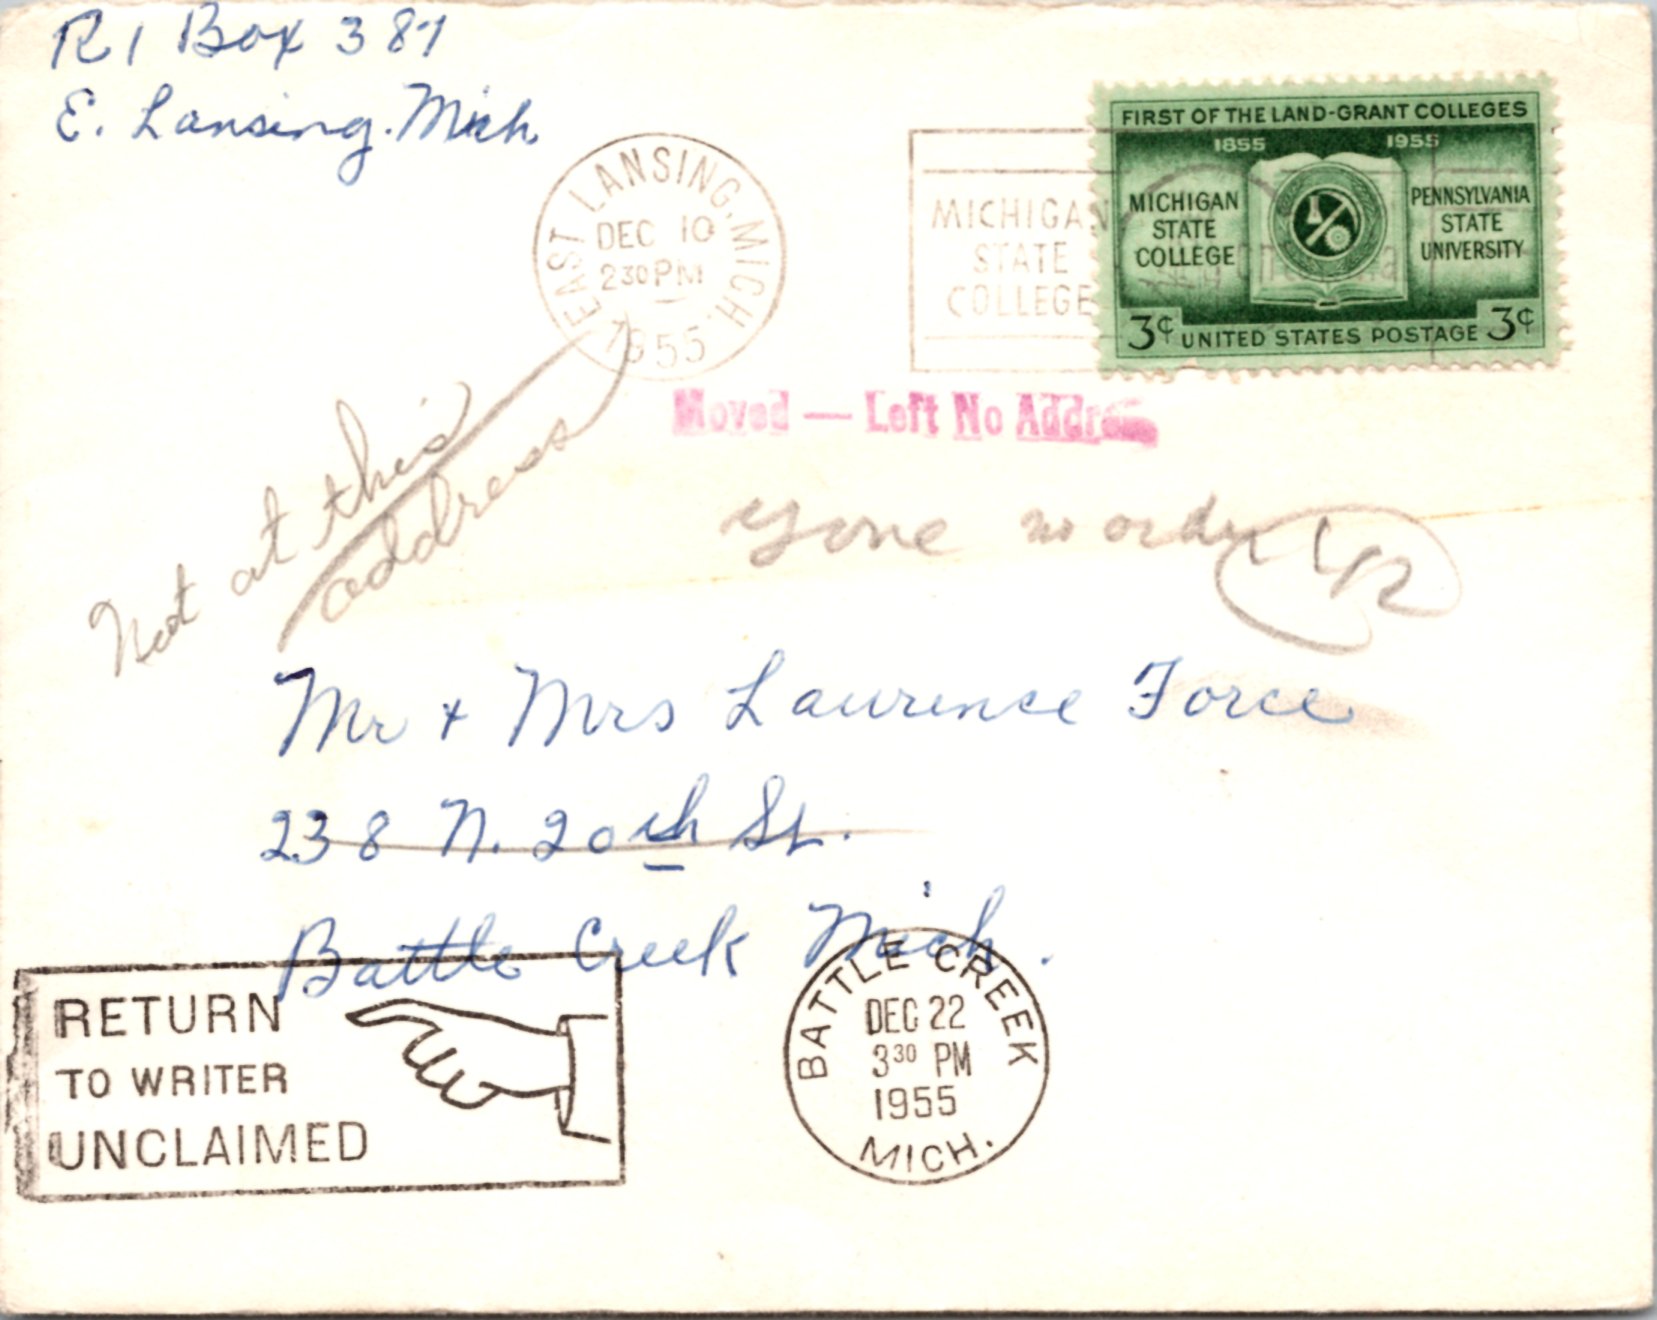 R1 Box 387
E. Lansing. Mich.
EAST LANSING, MICH.
DEC 10
2 30 PM
1955
MICHIGAN
STATE
COLLEGE
FIRST OF THE LAND-GRANT COLLEGES
1855 1955
MICHIGAN
STATE
COLLEGE
PENNSYLVANIA
STATE
UNIVERSITY
3¢ UNITED STATES POSTAGE 3¢
Moved — Left No Address
Not at this
address
gone no order
Mr + Mrs Laurence Force
238 N. 20th St.
Battle Creek Mich.
RETURN
TO WRITER
UNCLAIMED
BATTLE CREEK
DEC 22
3 30 PM
1955
MICH.